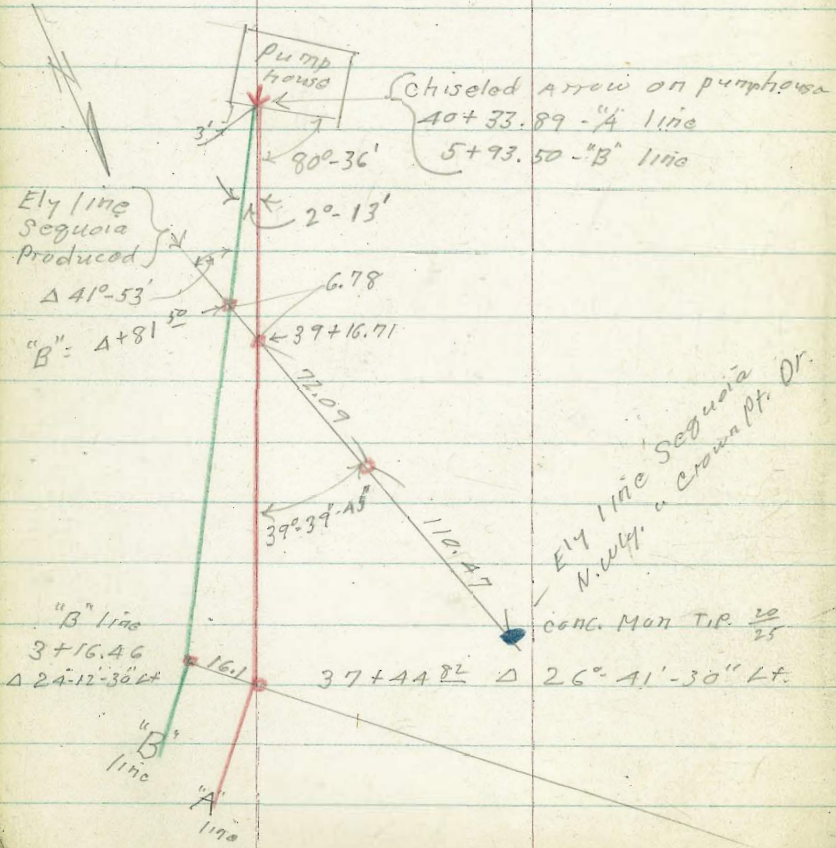 Pump
house
Chiseled Arrow on pumphouse
40+33.89 - "A" line
5+93.50 - "B" line
3'
80°-36'
2°-13'
Ely line
Sequoia
Produced
Δ 41°-53'
6.78
"B"= Δ+81 50
39+16.71
72.09
39°-39'-45"
110.47
Ely line Sequoia
N.Wly. " Crown Pt. Dr.
conc. Mon T.P. 20/25
"B" line
3+16.46
Δ 24-12'-30" Lt
16.1
37+44 82 Δ 26°-41'-30" Lt.
"B"
line
"A"
line